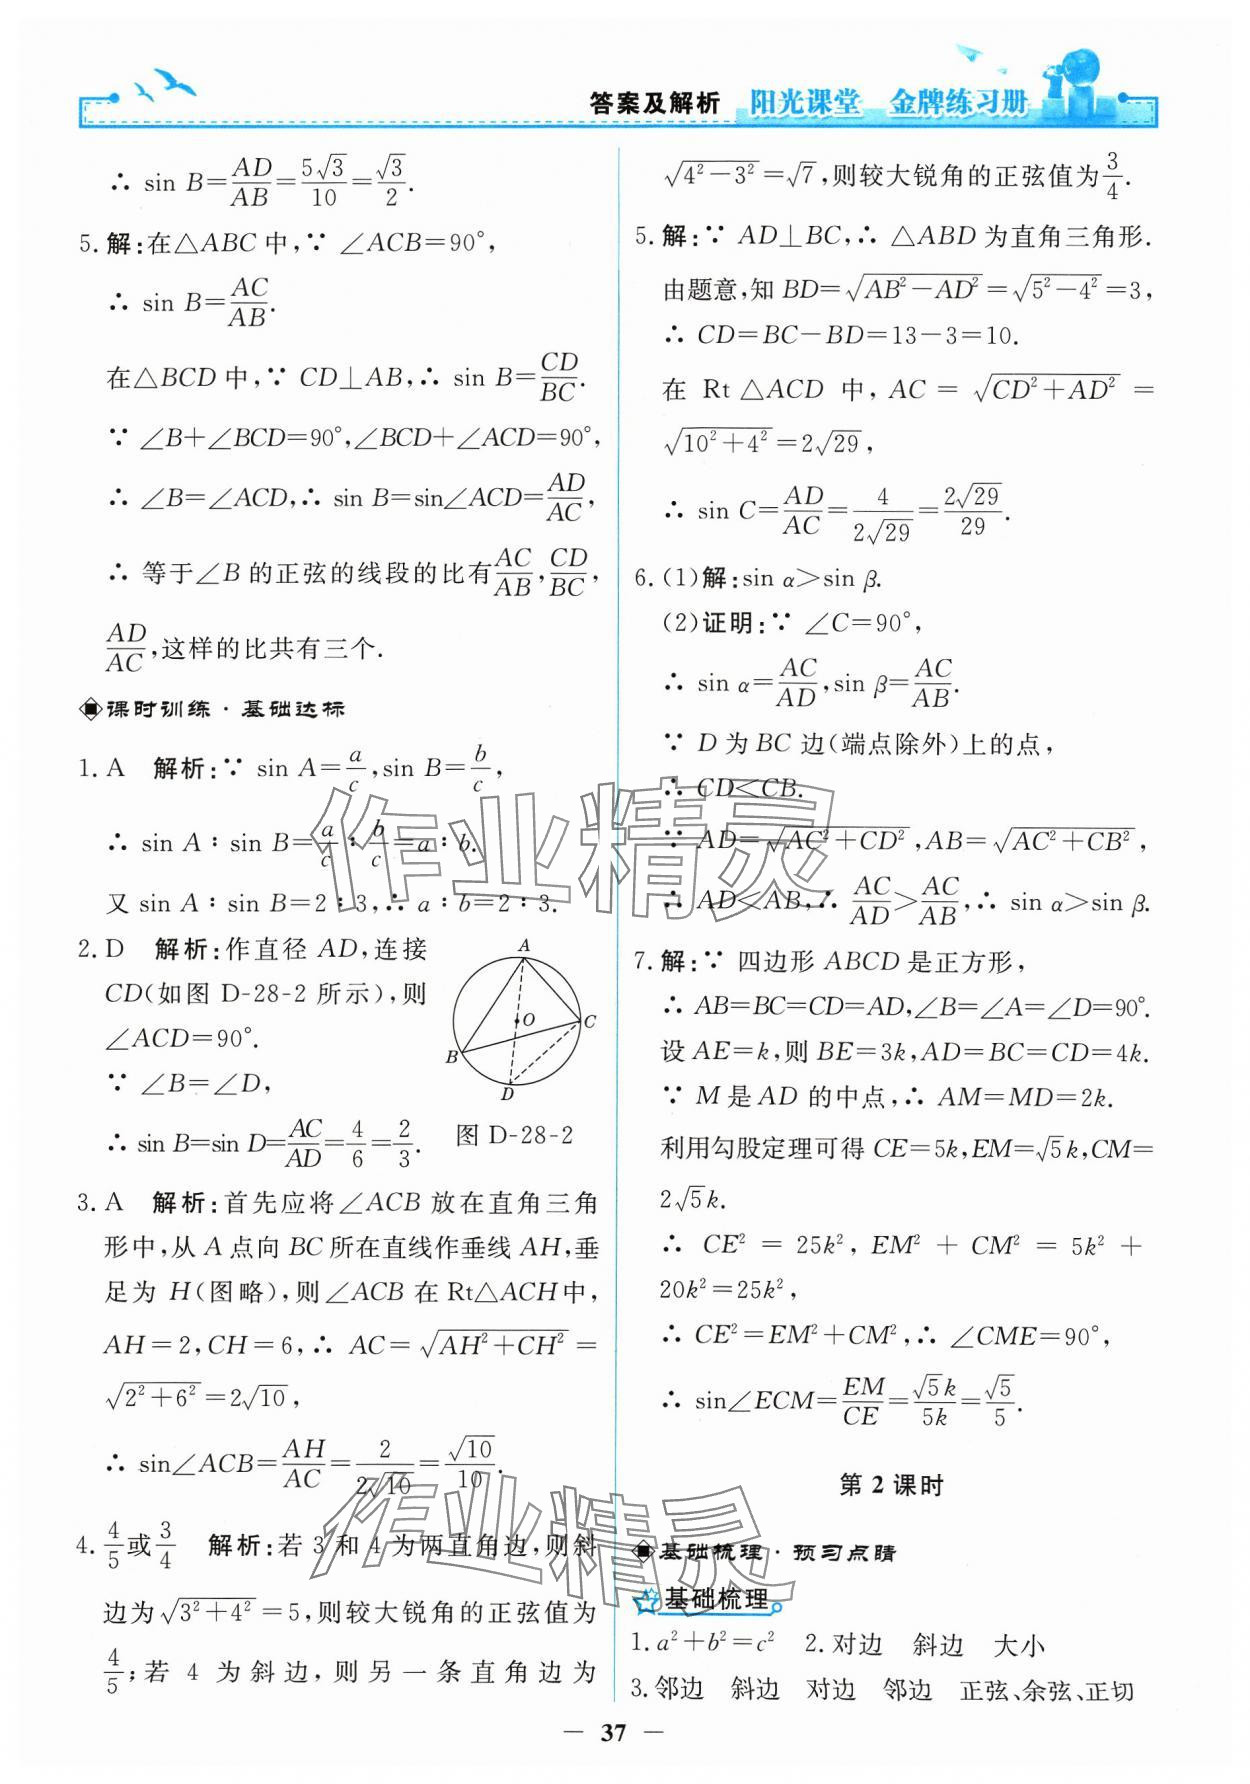 答案及解析 阳光课堂 金牌练习册
∴ sin B=AD/AB=5√3/10=√3/2.
5.解:在△ABC中,∵ ∠ACB=90°,
∴ sin B=AC/AB.
在△BCD中,∵ CD⊥AB,∴ sin B=CD/BC.
∵ ∠B+∠BCD=90°,∠BCD+∠ACD=90°,
∴ ∠B=∠ACD,∴ sin B=sin∠ACD=AD/AC,
∴ 等于∠B的正弦的线段的比有AC/AB,CD/BC,
AD/AC,这样的比共有三个.
课时训练·基础达标
1.A 解析:∵ sin A=a/c,sin B=b/c,
∴ sin A∶sin B=a/c∶b/c=a∶b.
又 sin A∶sin B=2∶3,∴ a∶b=2∶3.
2.D 解析:作直径AD,连接
CD(如图D-28-2所示),则
∠ACD=90°.
∵ ∠B=∠D,
∴ sin B=sin D=AC/AD=4/6=2/3.
A
O
C
B
D
图 D-28-2
3.A 解析:首先应将∠ACB放在直角三角
形中,从A点向BC所在直线作垂线AH,垂
足为 H(图略),则∠ACB在Rt△ACH中,
AH=2,CH=6,∴ AC=√(AH²+CH²)=
√(2²+6²)=2√10,
∴ sin∠ACB=AH/AC=2/(2√10)=√10/10.
4.4/5或3/4 解析:若3和4为两直角边,则斜
边为√(3²+4²)=5,则较大锐角的正弦值为
4/5;若 4 为斜边,则另一条直角边为
√(4²-3²)=√7,则较大锐角的正弦值为3/4.
5.解:∵ AD⊥BC,∴ △ABD为直角三角形.
由题意,知BD=√(AB²-AD²)=√(5²-4²)=3,
∴ CD=BC-BD=13-3=10.
在 Rt △ACD 中,AC=√(CD²+AD²)=
√(10²+4²)=2√29,
∴ sin C=AD/AC=4/(2√29)=2√29/29.
6.(1)解:sin α>sin β.
(2)证明:∵ ∠C=90°,
∴ sin α=AC/AD,sin β=AC/AB.
∵ D为BC边(端点除外)上的点,
∴ CD<CB.
∵ AD=√(AC²+CD²),AB=√(AC²+CB²),
∴ AD<AB,∴ AC/AD>AC/AB,∴ sin α>sin β.
7.解:∵ 四边形ABCD是正方形,
∴ AB=BC=CD=AD,∠B=∠A=∠D=90°.
设AE=k,则BE=3k,AD=BC=CD=4k.
∵ M是AD的中点,∴ AM=MD=2k.
利用勾股定理可得CE=5k,EM=√5k,CM=
2√5k.
∴ CE²=25k²,EM²+CM²=5k²+
20k²=25k²,
∴ CE²=EM²+CM²,∴ ∠CME=90°,
∴ sin∠ECM=EM/CE=√5k/5k=√5/5.
第2课时
基础梳理·预习点睛
基础梳理
1.a²+b²=c² 2.对边 斜边 大小
3.邻边 斜边 对边 邻边 正弦、余弦、正切
— 37 —
作业精灵
作业精灵